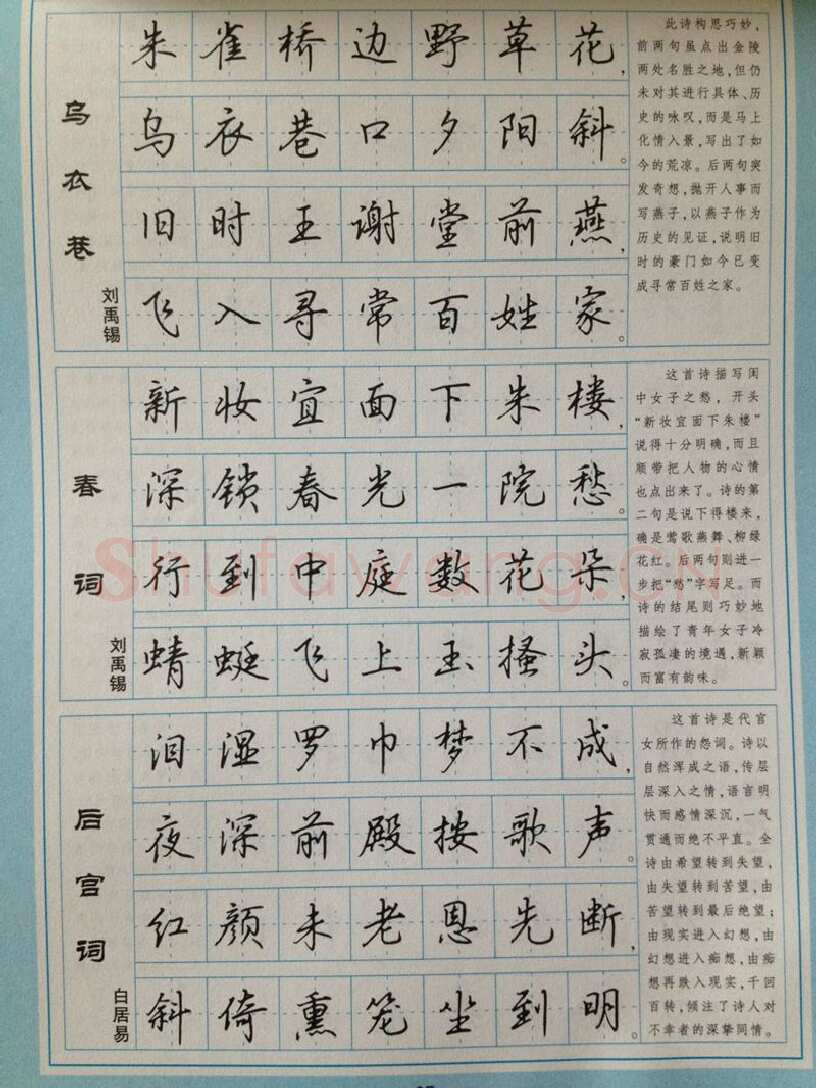 乌衣巷
刘禹锡
朱雀桥边野草花，
乌衣巷口夕阳斜。
旧时王谢堂前燕，
飞入寻常百姓家。
此诗构思巧妙，
前两句虽点出金陵
两处名胜之地，但仍
未对其进行具体、历
史的咏叹，而是马上
化情入景，写出了如
今的荒凉。后两句突
发奇想，抛开人事而
写燕子，以燕子作为
历史的见证，说明旧
时的豪门如今已变
成寻常百姓之家。
春词
刘禹锡
新妆宜面下朱楼，
深锁春光一院愁。
行到中庭数花朵，
蜻蜓飞上玉搔头。
这首诗描写闺
中女子之愁，开头
“新妆宜面下朱楼”
说得十分明确，而且
顺带把人物的心情
也点出来了。诗的第
二句是说下得楼来，
确是莺歌燕舞、柳绿
花红。后两句则进一
步把“愁”字写足。而
诗的结尾则巧妙地
描绘了青年女子冷
寂孤凄的境遇，新颖
而富有韵味。
后宫词
白居易
泪湿罗巾梦不成，
夜深前殿按歌声。
红颜未老恩先断，
斜倚熏笼坐到明。
这首诗是代宫
女所作的怨词。诗以
自然浑成之语，传层
层深入之情，语言明
快而感情深沉，一气
贯通而绝不平直。全
诗由希望转到失望，
由失望转到苦望，由
苦望转到最后绝望；
由现实进入幻想，由
幻想进入痴想，由痴
想再跌入现实，千回
百转，倾注了诗人对
不幸者的深挚同情。
shufawang.cn